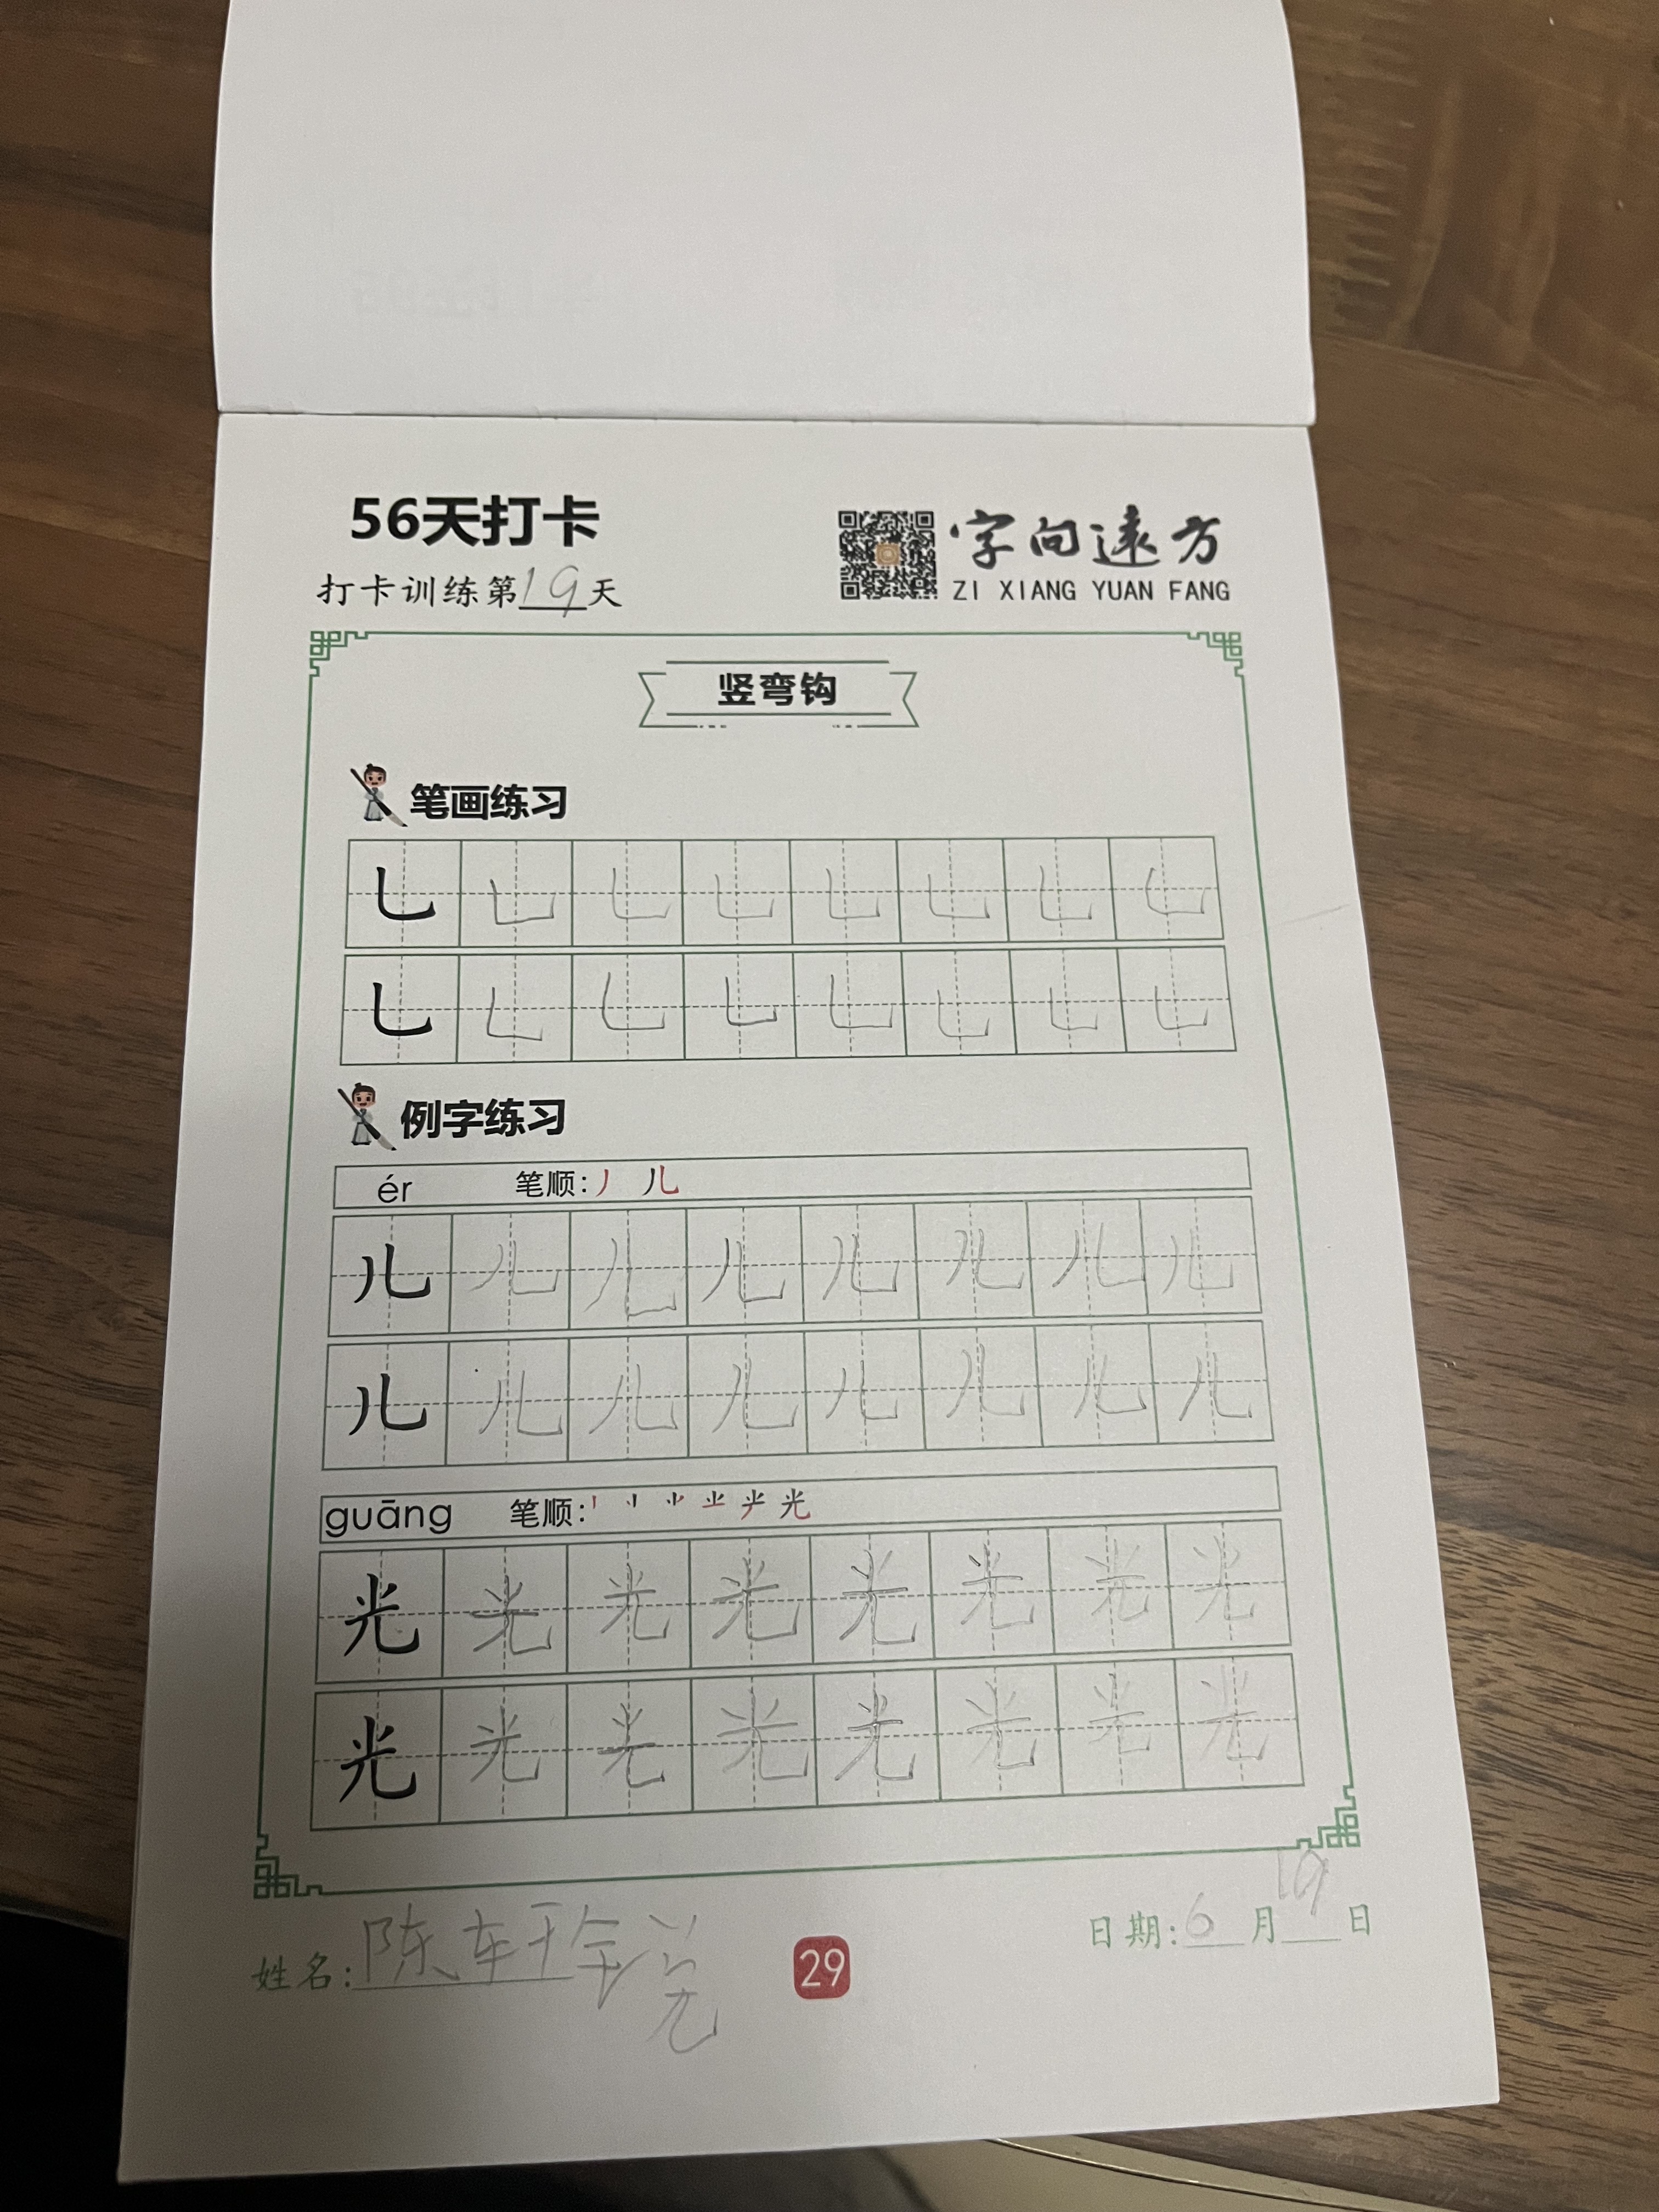 56天打卡
打卡训练第19天
字向远方
ZI XIANG YUAN FANG
竖弯钩
笔画练习
乚 乚 乚 乚 乚 乚 乚 乚
乚 乚 乚 乚 乚 乚 乚 乚
例字练习
ér 笔顺:丿 儿
儿 儿 儿 儿 儿 儿 儿 儿
儿 儿 儿 儿 儿 儿 儿 儿
guāng 笔顺: 光
光 光 光 光 光 光 光 光
光 光 光 光 光 光 光 光
姓名:陈
29
日期:6月19日